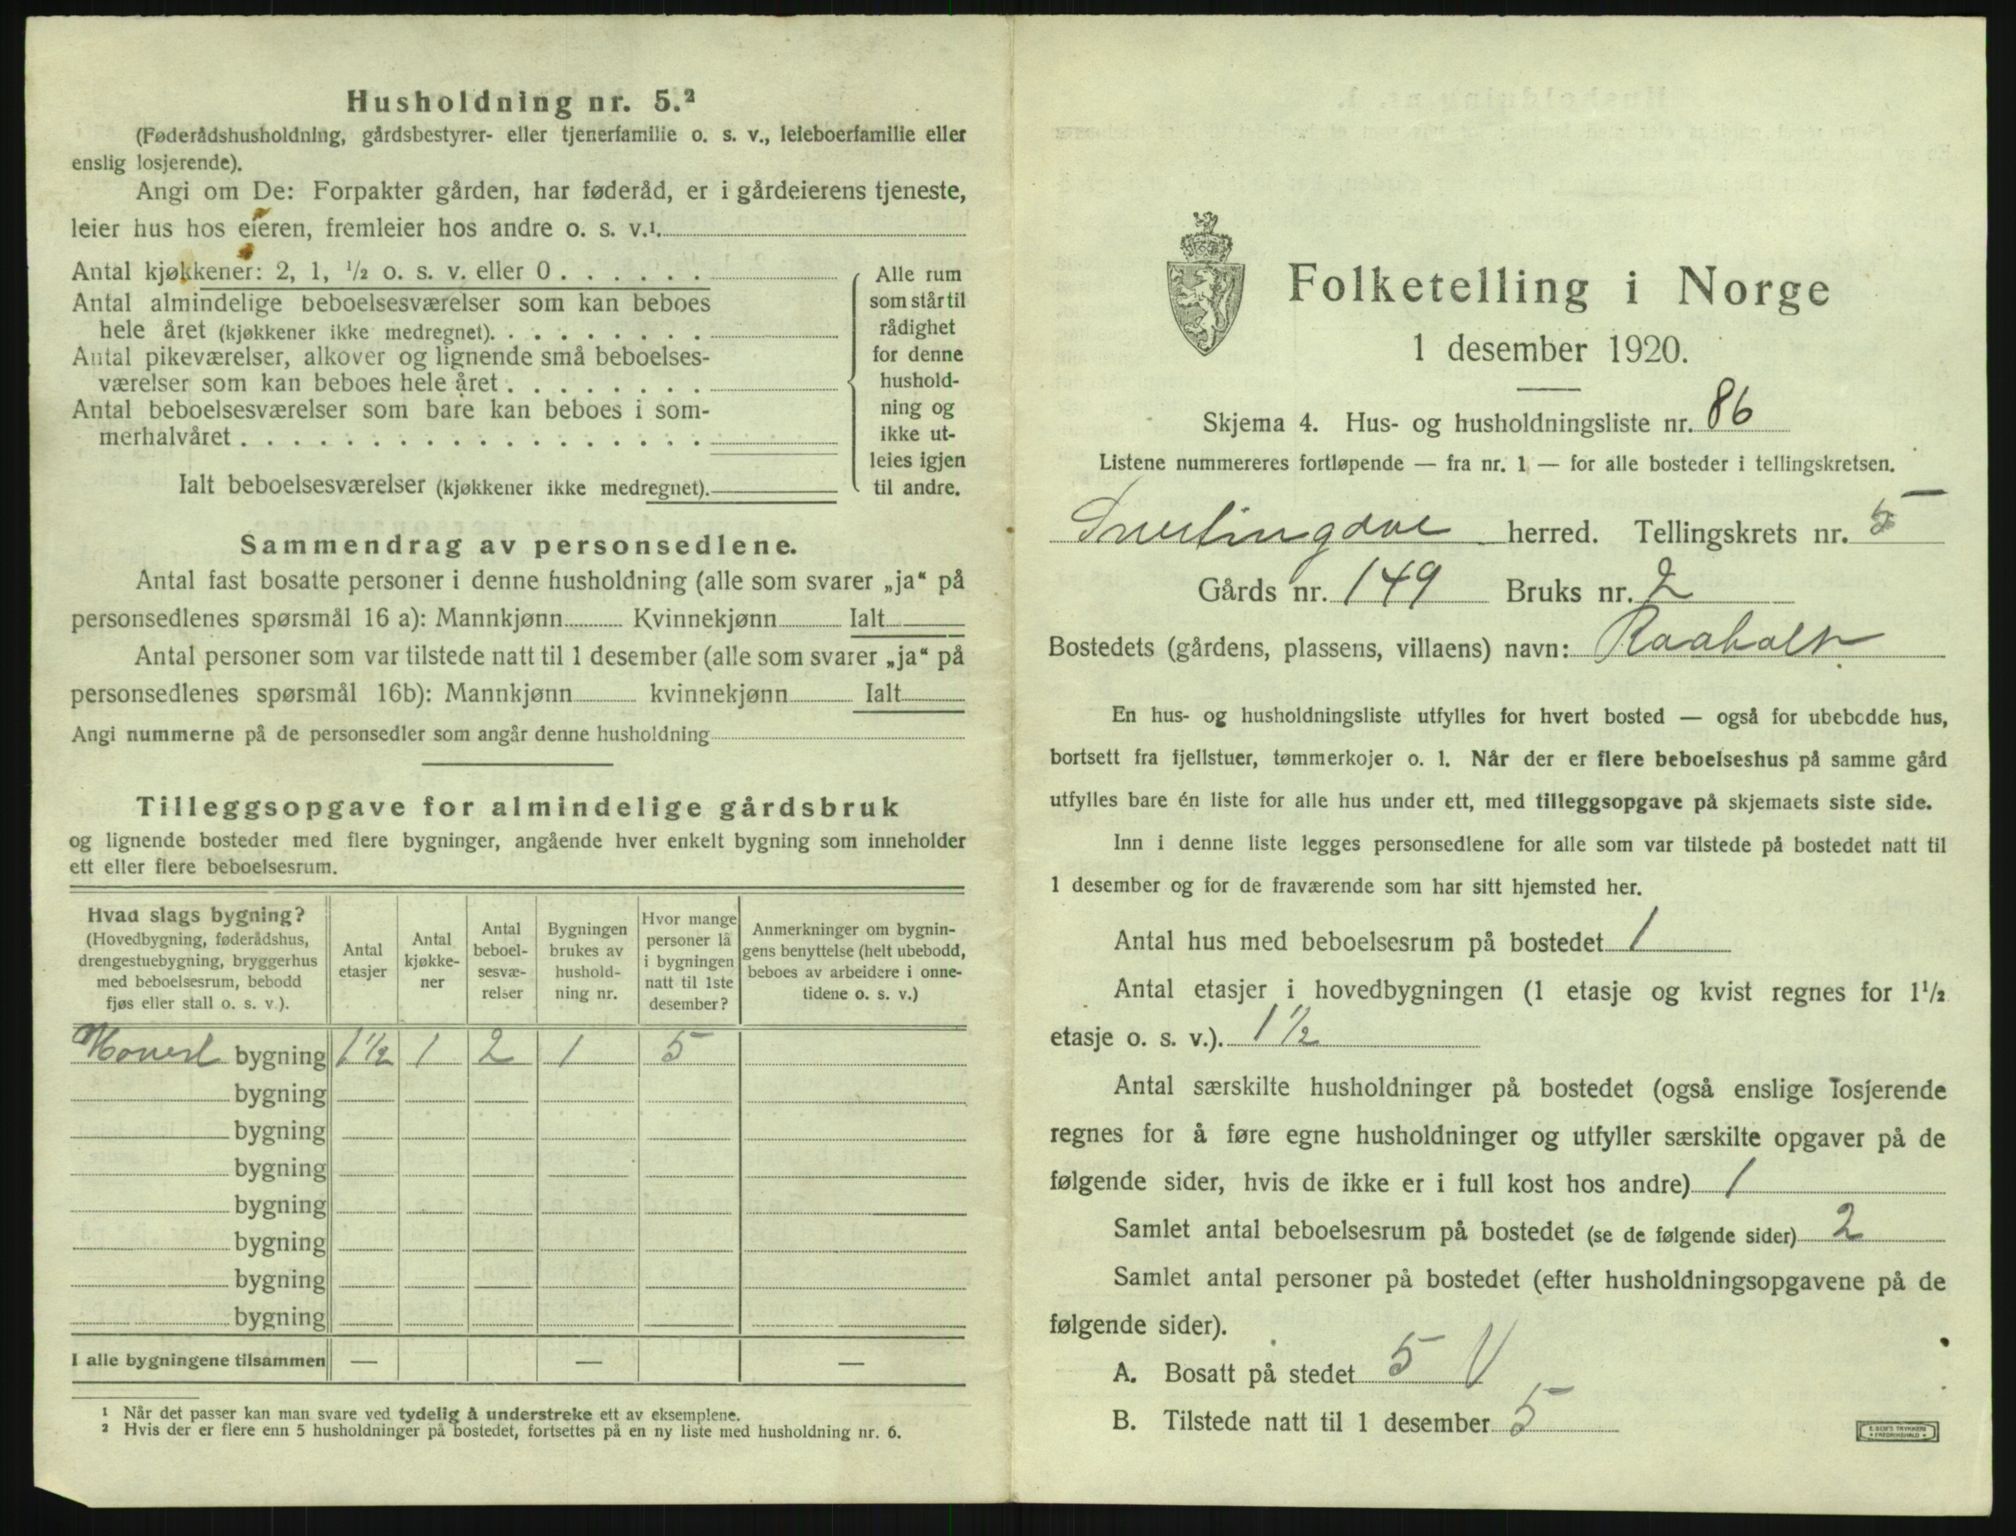 Husholdning nr. 5.²
(Føderådshusholdning, gårdsbestyrer- eller tjenerfamilie o. s. v., leieboerfamilie eller
enslig losjerende).
Angi om De: Forpakter gården, har føderåd, er i gårdeierens tjeneste,
leier hus hos eieren, fremleier hos andre o. s. v.¹
Antal kjøkkener: 2, 1, ½ o. s. v. eller 0 . . . . . .
Antal almindelige beboelsesværelser som kan beboes
hele året (kjøkkener ikke medregnet). . . . . . . . .
Antal pikeværelser, alkover og lignende små beboelses-
værelser som kan beboes hele året . . . . . . . .
Antal beboelsesværelser som bare kan beboes i som-
merhalvåret . . . . . . . . . . . . . . . . . .
Ialt beboelsesværelser (kjøkkener ikke medregnet).
Alle rum
som står til
rådighet
for denne
hushold-
ning og
ikke ut-
leies igjen
til andre.
Sammendrag av personsedlene.
Antal fast bosatte personer i denne husholdning (alle som svarer „ja“ på
personsedlenes spørsmål 16 a): Mannkjønn Kvinnekjønn Ialt
Antal personer som var tilstede natt til 1 desember (alle som svarer „ja“ på
personsedlenes spørsmål 16b): Mannkjønn kvinnekjønn Ialt
Angi nummerne på de personsedler som angår denne husholdning
Tilleggsopgave for almindelige gårdsbruk
og lignende bosteder med flere bygninger, angående hver enkelt bygning som inneholder
ett eller flere beboelsesrum.
Hvad slags bygning?
(Hovedbygning, føderådshus,
drengestuebygning, bryggerhus
med beboelsesrum, bebodd
fjøs eller stall o. s. v.).
Antal
etasjer
Antal
kjøkke-
ner
Antal
beboel-
sesvæ-
relser
Bygningen
brukes av
hushold-
ning nr.
Hvor mange
personer lå
i bygningen
natt til 1ste
desember?
Anmerkninger om bygnin-
gens benyttelse (helt ubebodd,
beboes av arbeidere i onne-
tidene o. s. v.)
Hoved bygning 1½ 1 2 1 5
bygning
bygning
bygning
bygning
bygning
bygning
bygning
I alle bygningene tilsammen — — —
¹ Når det passer kan man svare ved tydelig å understreke ett av eksemplene.
² Hvis der er flere enn 5 husholdninger på bostedet, fortsettes på en ny liste med husholdning nr. 6.
Folketelling i Norge
1 desember 1920.
Skjema 4. Hus- og husholdningsliste nr. 86
Listene nummereres fortløpende — fra nr. 1 — for alle bosteder i tellingskretsen.
Snertingdal herred. Tellingskrets nr. 5
Gårds nr. 149 Bruks nr. 2
Bostedets (gårdens, plassens, villaens) navn: Raaholt
En hus- og husholdningsliste utfylles for hvert bosted — også for ubebodde hus,
bortsett fra fjellstuer, tømmerkojer o. l. Når der er flere beboelseshus på samme gård
utfylles bare én liste for alle hus under ett, med tilleggsopgave på skjemaets siste side.
Inn i denne liste legges personsedlene for alle som var tilstede på bostedet natt til
1 desember og for de fraværende som har sitt hjemsted her.
Antal hus med beboelsesrum på bostedet 1
Antal etasjer i hovedbygningen (1 etasje og kvist regnes for 1½
etasje o. s. v.). 1½
Antal særskilte husholdninger på bostedet (også enslige losjerende
regnes for å føre egne husholdninger og utfyller særskilte opgaver på de
følgende sider, hvis de ikke er i full kost hos andre) 1
Samlet antal beboelsesrum på bostedet (se de følgende sider) 2
Samlet antal personer på bostedet (efter husholdningsopgavene på de
følgende sider).
A. Bosatt på stedet 5 V
B. Tilstede natt til 1 desember 5
E. SEM'S TRYKKERI
FREDRIKSHALD